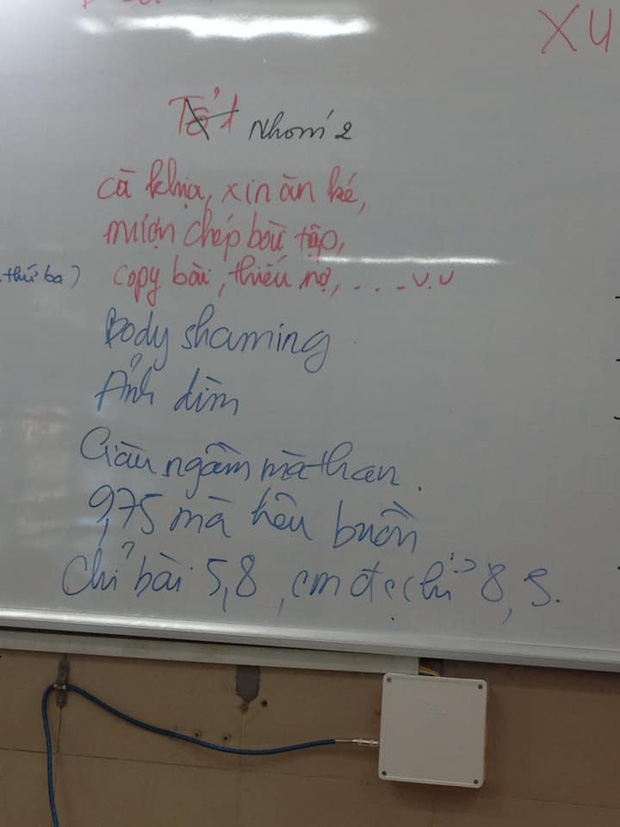 XU
Tổ 1 Nhóm 2
cà khịa, xin ăn ké,
mượn chép bài tập,
thứ ba) copy bài, thiếu nợ, . . . v.v
Body shaming
Ảnh dìm
Giàu ngầm mà than.
9,75 mà kêu buồn
Chỉ bài 5,8, cm đc chỉ 8,5.